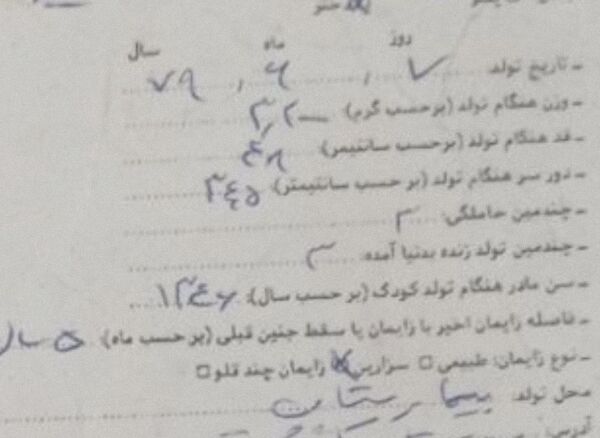 روز ماه سال
- تاریخ تولد: ۷ , ۶ , ۷۹
- وزن هنگام تولد (برحسب گرم): ۳,۲۰۰
- قد هنگام تولد (برحسب سانتیمر):
- دور سر هنگام تولد (بر حسب سانتیمتر):
- چندمین حاملگی: ۳
- چندمین تولد زنده بدنیا آمده: ۳
- سن مادر هنگام تولد کودک (بر حسب سال):
- فاصله زایمان اخیر با زایمان یا سقط جنین قبلی (بر حسب ماه): ۵ سال
- نوع زایمان: طبیعی □ سزارین ☒ زایمان چند قلو □
محل تولد: بیمارستان
آدرس: